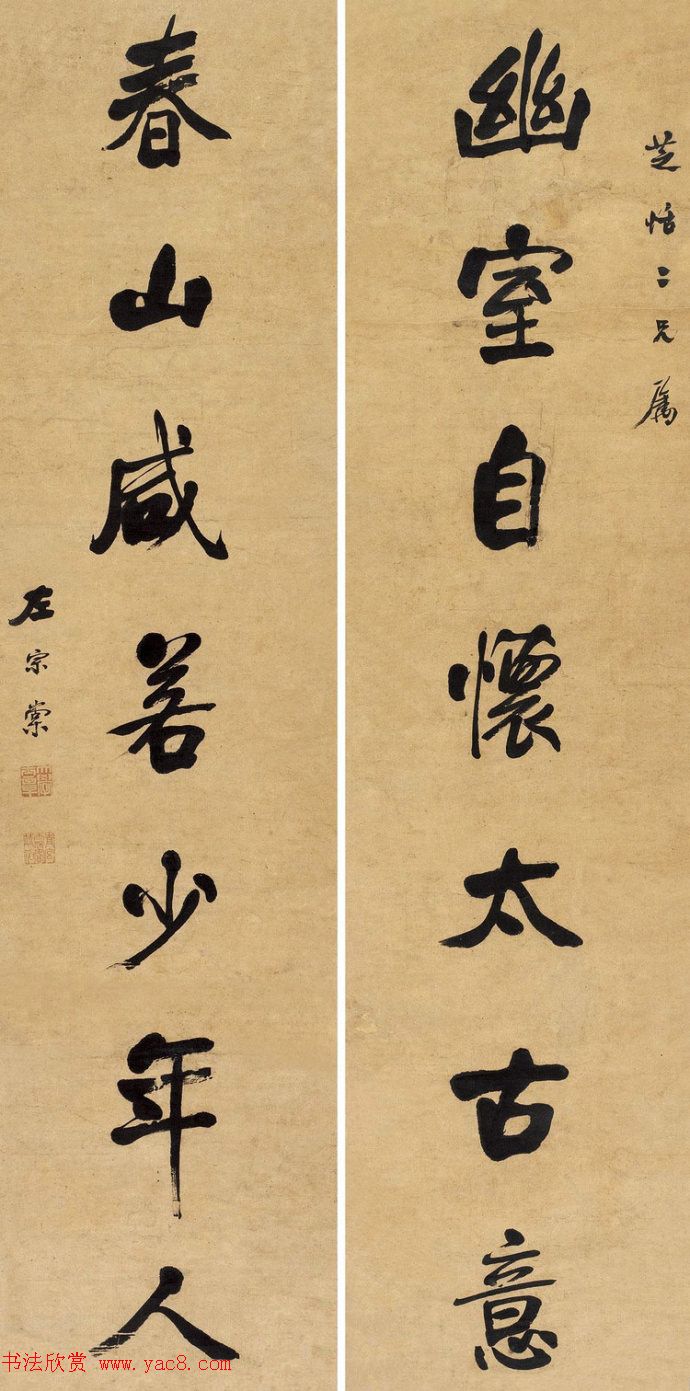 芝恬二兄属
幽室自懷太古意
春山咸若少年人
左宗棠
书法欣赏 www.yac8.com